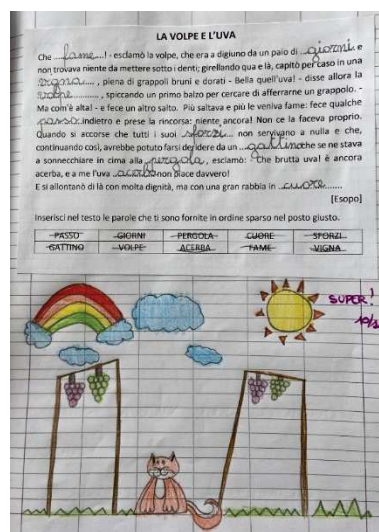 LA VOLPE E L'UVA
Che ....fame....! - esclamò la volpe, che era a digiuno da un paio di ...giorni. e
non trovava niente da mettere sotto i denti; girellando qua e là, capitò per caso in una
..vigna...., piena di grappoli bruni e dorati - Bella quell'uva! - disse allora la
..volpe............, spiccando un primo balzo per cercare di afferrarne un grappolo. -
Ma com'è alta! - e fece un altro salto. Più saltava e più le veniva fame: fece qualche
..passo..indietro e prese la rincorsa: niente ancora! Non ce la faceva proprio.
Quando si accorse che tutti i suoi ..sforzi... non servivano a nulla e che,
continuando così, avrebbe potuto farsi deridere da un ...gattino che se ne stava
a sonnecchiare in cima alla ..pergola.., esclamò: Che brutta uva! è ancora
acerba, e a me l'uva ..acerba non piace davvero!
E si allontanò di là con molta dignità, ma con una gran rabbia in ..cuore.......
[Esopo]
Inserisci nel testo le parole che ti sono fornite in ordine sparso nel posto giusto.
PASSO GIORNI PERGOLA CUORE SFORZI
GATTINO VOLPE ACERBA FAME VIGNA
SUPER!